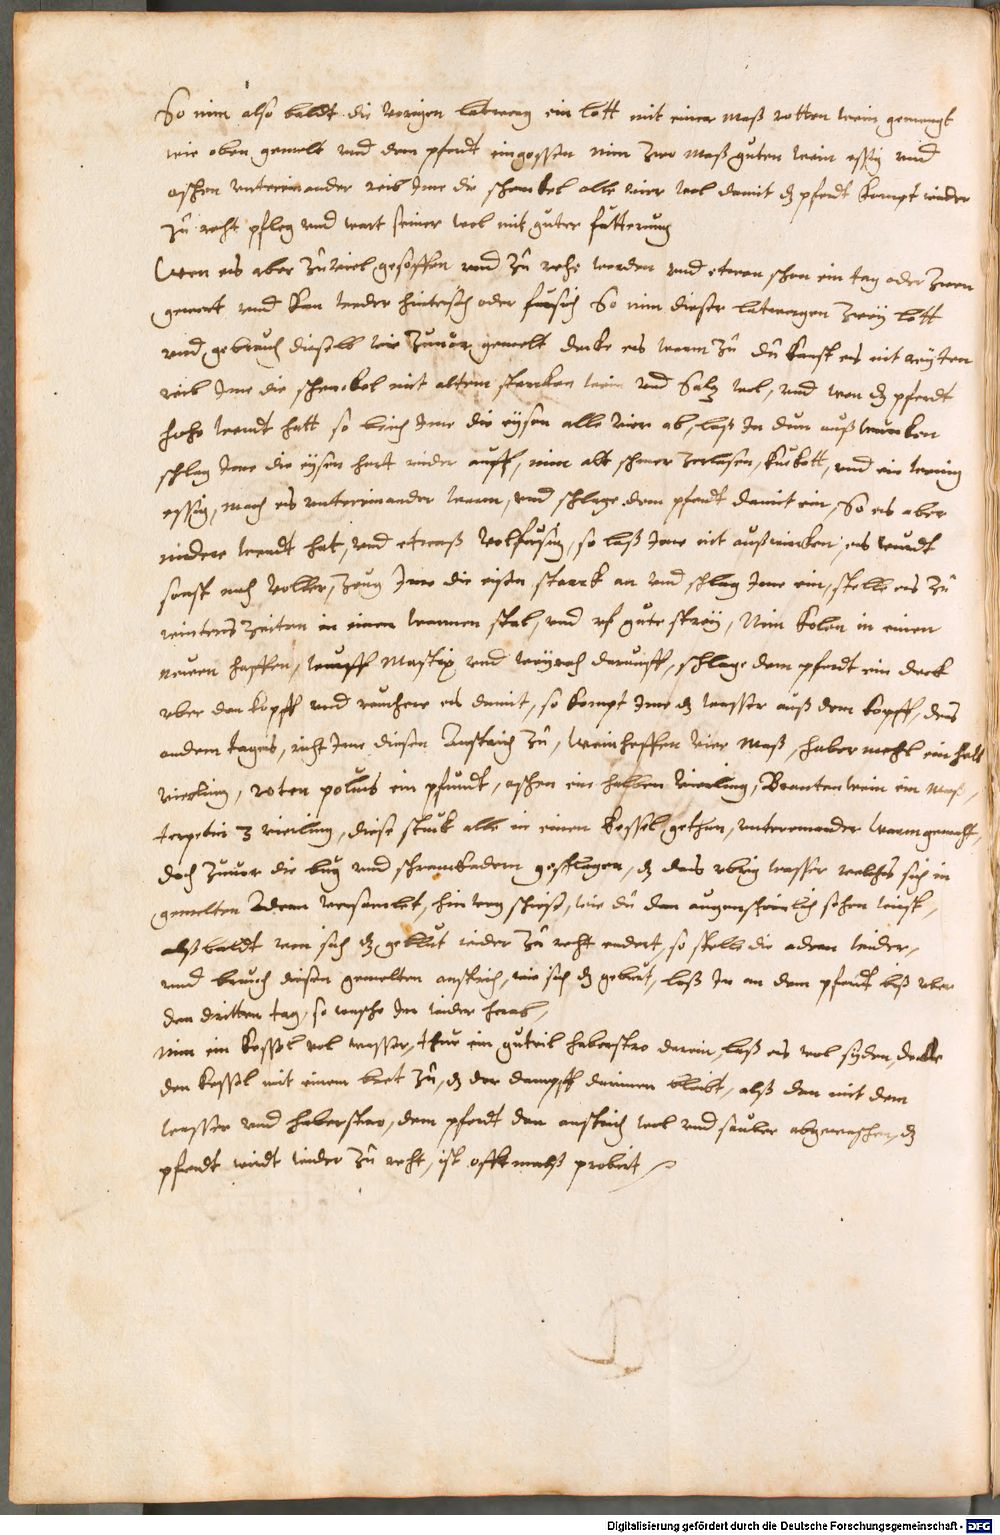 So nim also baldt die vorigen latwerg ein lott mit einer maß rotten wein gemengt
wie oben gemelt vnd dem pferdt eingossen nim zwo maß guten wein essig vnd
aschen vntereinander reib Ime die schenkel alle vier wol damit dz pferdt kompt wider
zu recht pfleg vnd wart seiner wol mit guter futterung
Wen es aber zu viel gesoffen vnd zu rehe worden vnd etwan schon ein tag oder zwen
gewert vnd kan weder hintersich oder fursich So nim dieser latwergen zweÿ lott
vnd gebrauch dieselb wie zuuor gemelt decke es warm zu du kanst es nit reÿten
reib Ime die schenckel mit altem starcken wein vnd Saltz wol, vnd wen dz pferdt
hohe wendt hatt so brich Ime die eÿsen alle vier ab, laß In dun außwurcken
schlag Ime die eÿsen hart wider auff, nim alt schmer zerlasen, kukott, vnd ein wenig
essig, mach es vntereinander warm, vnd schlage dem pferdt damit ein, So es aber
nidere wendt hat, vnd etwaß volfusig, so laß Ime nit außwircken, es wurdt
sonst noch voller, zeug Ime die eisen starck an vnd schlag Ime ein, stelle es zu
winters zeiten in einen warmen stal, vnd vf gute streÿ, Nim kolen in einen
neuen haffen, wurff Mastix vnd weÿrach darauff, schlage dem pferdt ein deck
vber den kopff vnd reuchere es damit, so kompt Ime dz wasser auß dem kopff, des
andern tages, richt Ime diesen Anstrich zu, Weinheffen vier Maß, haber mehl ein halb
vierling, roten polus ein pfundt, aschen ein halben vierling, Brantenwein ein Maß,
terpetin 3 vierling, diese stuk alle in einen kessel gethan, vntereinander warm gemacht,
doch zuuor die bug vnd schranckadern geschlagen, dz das vbrig wasser welches sich in
gemelten Adern versamlet, hinweg schiese, wie du dan augenscheinlich sehen wirst,
alßbaldt wen sich dz geblut wider zu recht endert, so stelle die adern wider,
vnd brauch diesen gemelten anstrich, wie sich dz geburt, laß In an dem pferdt biß vber
den dritten tag, so wasche In wider herab,
Nim ein kessel vol wasser, thue ein guteil haberstro darein, laß es wol syden, decke
den kessel mit einem bret zu, dz der dampff drinnen bleibt, alß dan mit dem
wasser vnd haberstro, dem pferdt den anstrich wol vnd sauber abgewaschen, dz
pferdt wirdt wider zu recht, ist offtmalß probirt
Digitalisierung gefördert durch die Deutsche Forschungsgemeinschaft - DFG